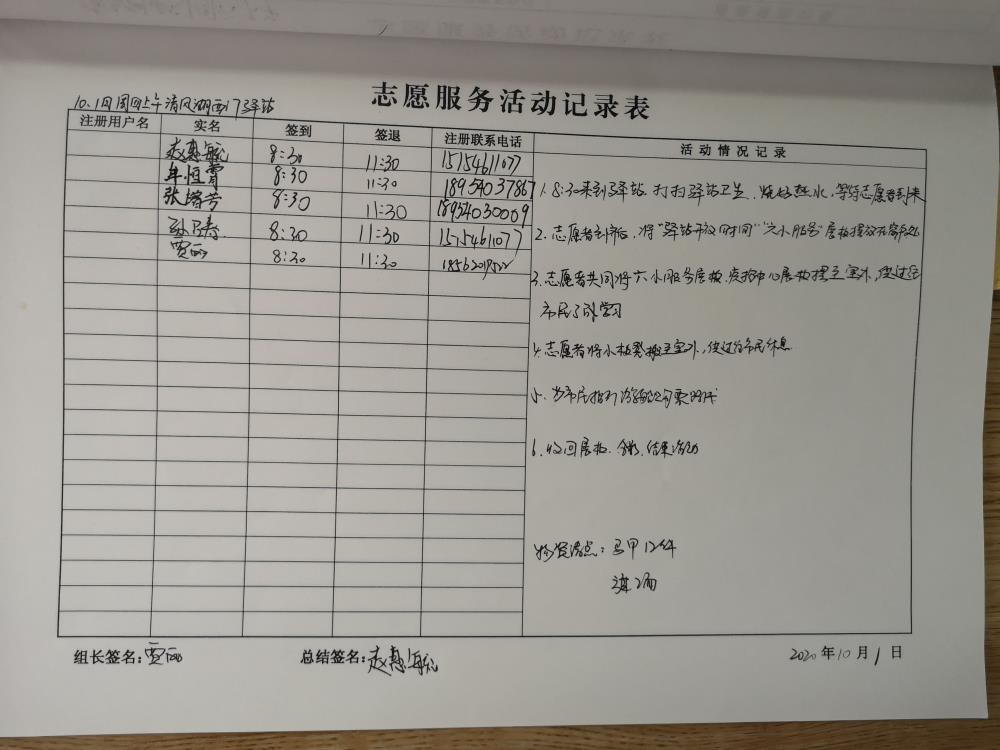 志愿服务活动记录表
10.1日周四上午清风湖西门驿站
注册用户名 实名 签到 签退 注册联系电话 活动情况记录
赵惠毓 8:30 11:30 15154611077
牟恒霄 8:30 11:30 18954037867
张 芳 8:30 11:30 18954030009
孙 涛 8:30 11:30 15154611077
贾丽 8:30 11:30
1. 8:30来到驿站.打扫驿站卫生.烧好热水,等待志愿者到来
2. 志愿者到齐后,将"驿站开放时间""六小服务"展板摆放在
3. 志愿者共同将六小服务展板、 中心展板摆至室外,使过往
市民了解学习
4. 志愿者将小板凳搬至室外,供过往市民休息
5. 为市民指引
6. 收回展板. 结束活动
物资清点:马甲12件
组长签名:贾丽 总结签名:赵惠毓 2020年10月1日